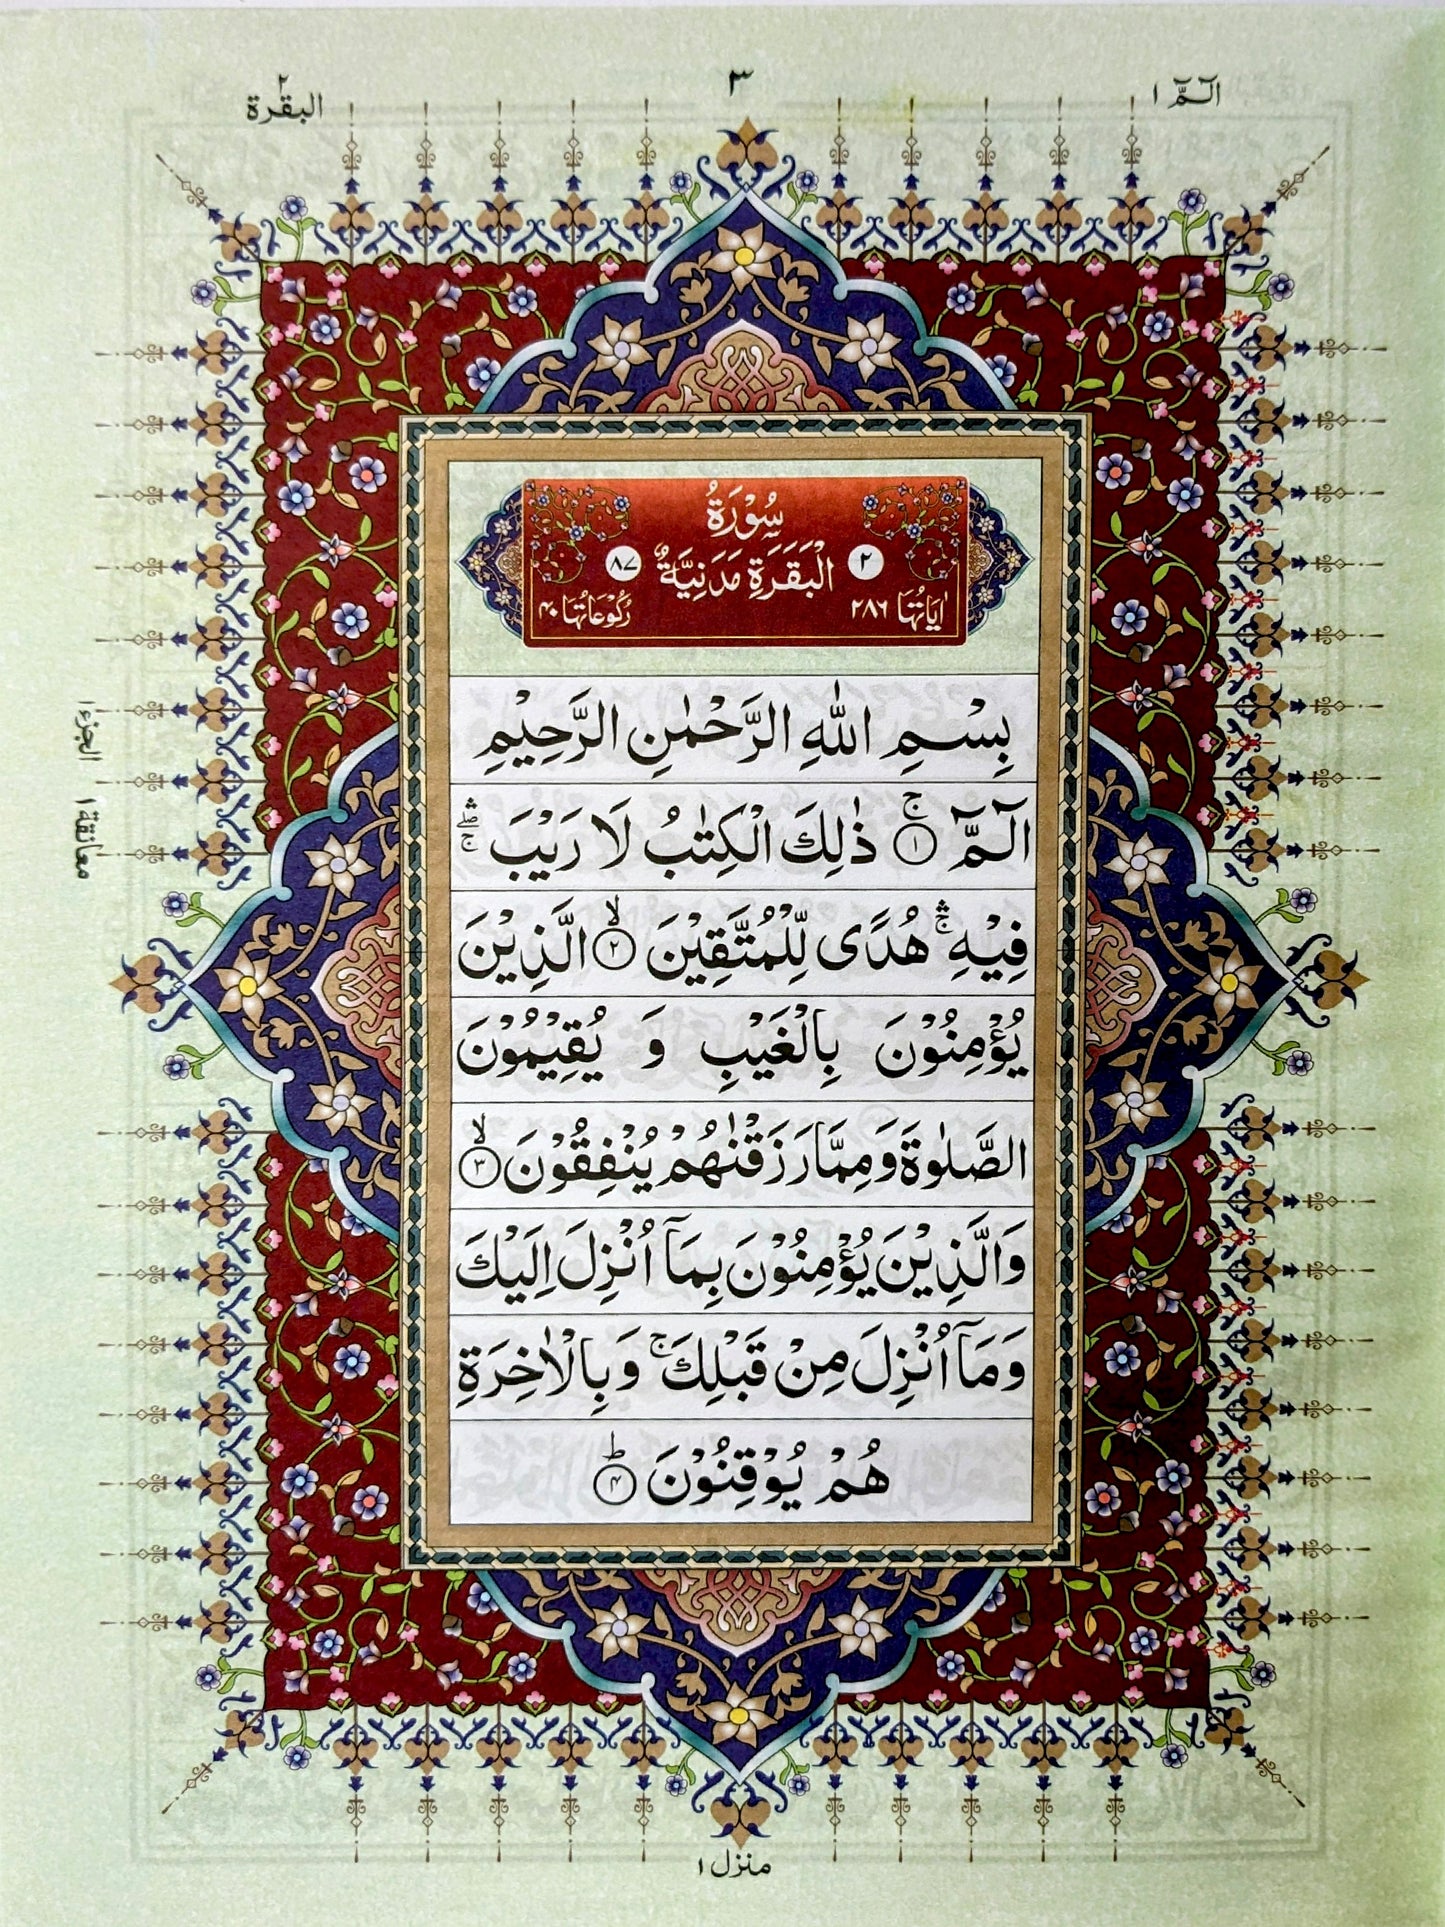 الٓمّٓ ١
٣
البقرة ٢
سُوْرَةُ
٢ الْبَقَرَةِ مَدَنِيَّةٌ ٨٧
اٰيَاتُهَا ٢٨٦ رُكُوْعَاتُهَا ٤٠
بِسْمِ اللّٰهِ الرَّحْمٰنِ الرَّحِيْمِ
الٓمّٓ ۚ ١ ذٰلِكَ الْكِتٰبُ لَا رَيْبَ ۛۖۚ
فِيْهِ ۛۚ هُدًى لِّلْمُتَّقِيْنَ ۙ ٢ الَّذِيْنَ
يُؤْمِنُوْنَ بِالْغَيْبِ وَ يُقِيْمُوْنَ
الصَّلٰوةَ وَمِمَّا رَزَقْنٰهُمْ يُنْفِقُوْنَ ۙ ٣
وَالَّذِيْنَ يُؤْمِنُوْنَ بِمَآ اُنْزِلَ اِلَيْكَ
وَمَآ اُنْزِلَ مِنْ قَبْلِكَ ۚ وَبِالْاٰخِرَةِ
هُمْ يُوْقِنُوْنَ ؕ ٤
الجزء ١
معانقة ١
منزل ١